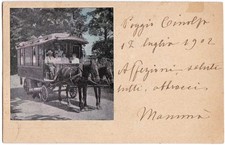 Poggio Cinolfo
17 luglio 1902
Affezioni, saluti
tutti, abbracci
Mamma